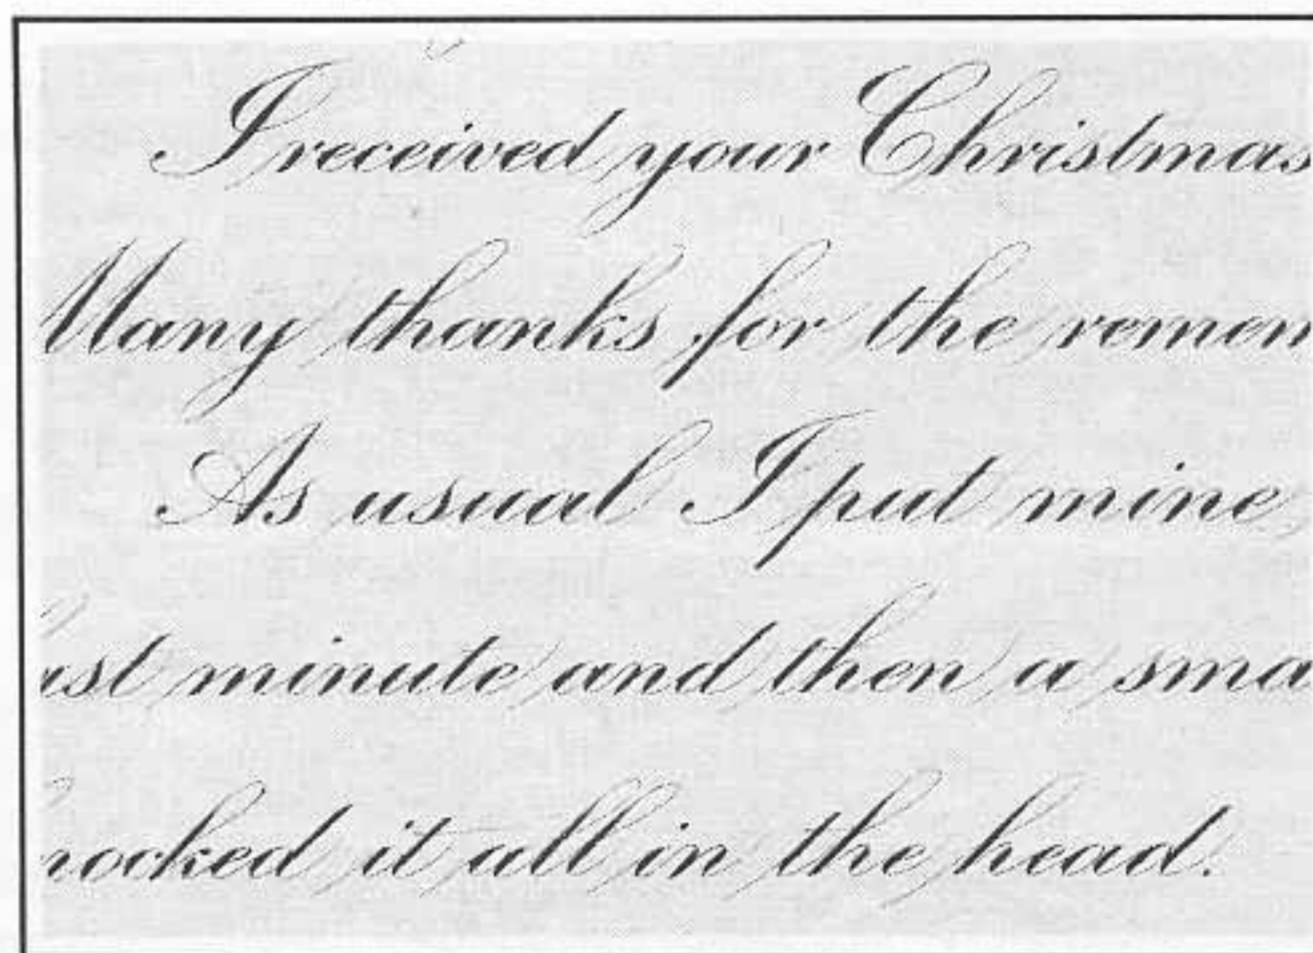 I received your Christmas
Many thanks for the remem
As usual I put mine
ast minute and then a sma
nocked it all in the head.